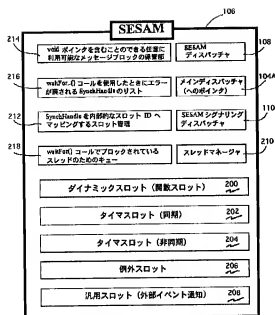 106
SESAM
214
void ポインタを含むことのできる任意に
利用可能なメッセージブロックの保管部
SESAM
ディスパッチャ
108
216
waitFor...() コールを使用したときにエラー
が戻される SynchHandle のリスト
メインディスパッチャ
(へのポインタ)
104A
212
SynchHandle を内部的なスロット ID へ
マッピングするスロット管理
SESAM シグナリング
ディスパッチャ
110
218
waitFor() コールでブロックされている
スレッドのためのキュー
スレッドマネージャ
210
ダイナミックスロット (関数スロット) 200
タイマスロット (同期) 202
タイマスロット (非同期) 204
例外スロット 206
汎用スロット (外部イベント通知) 208